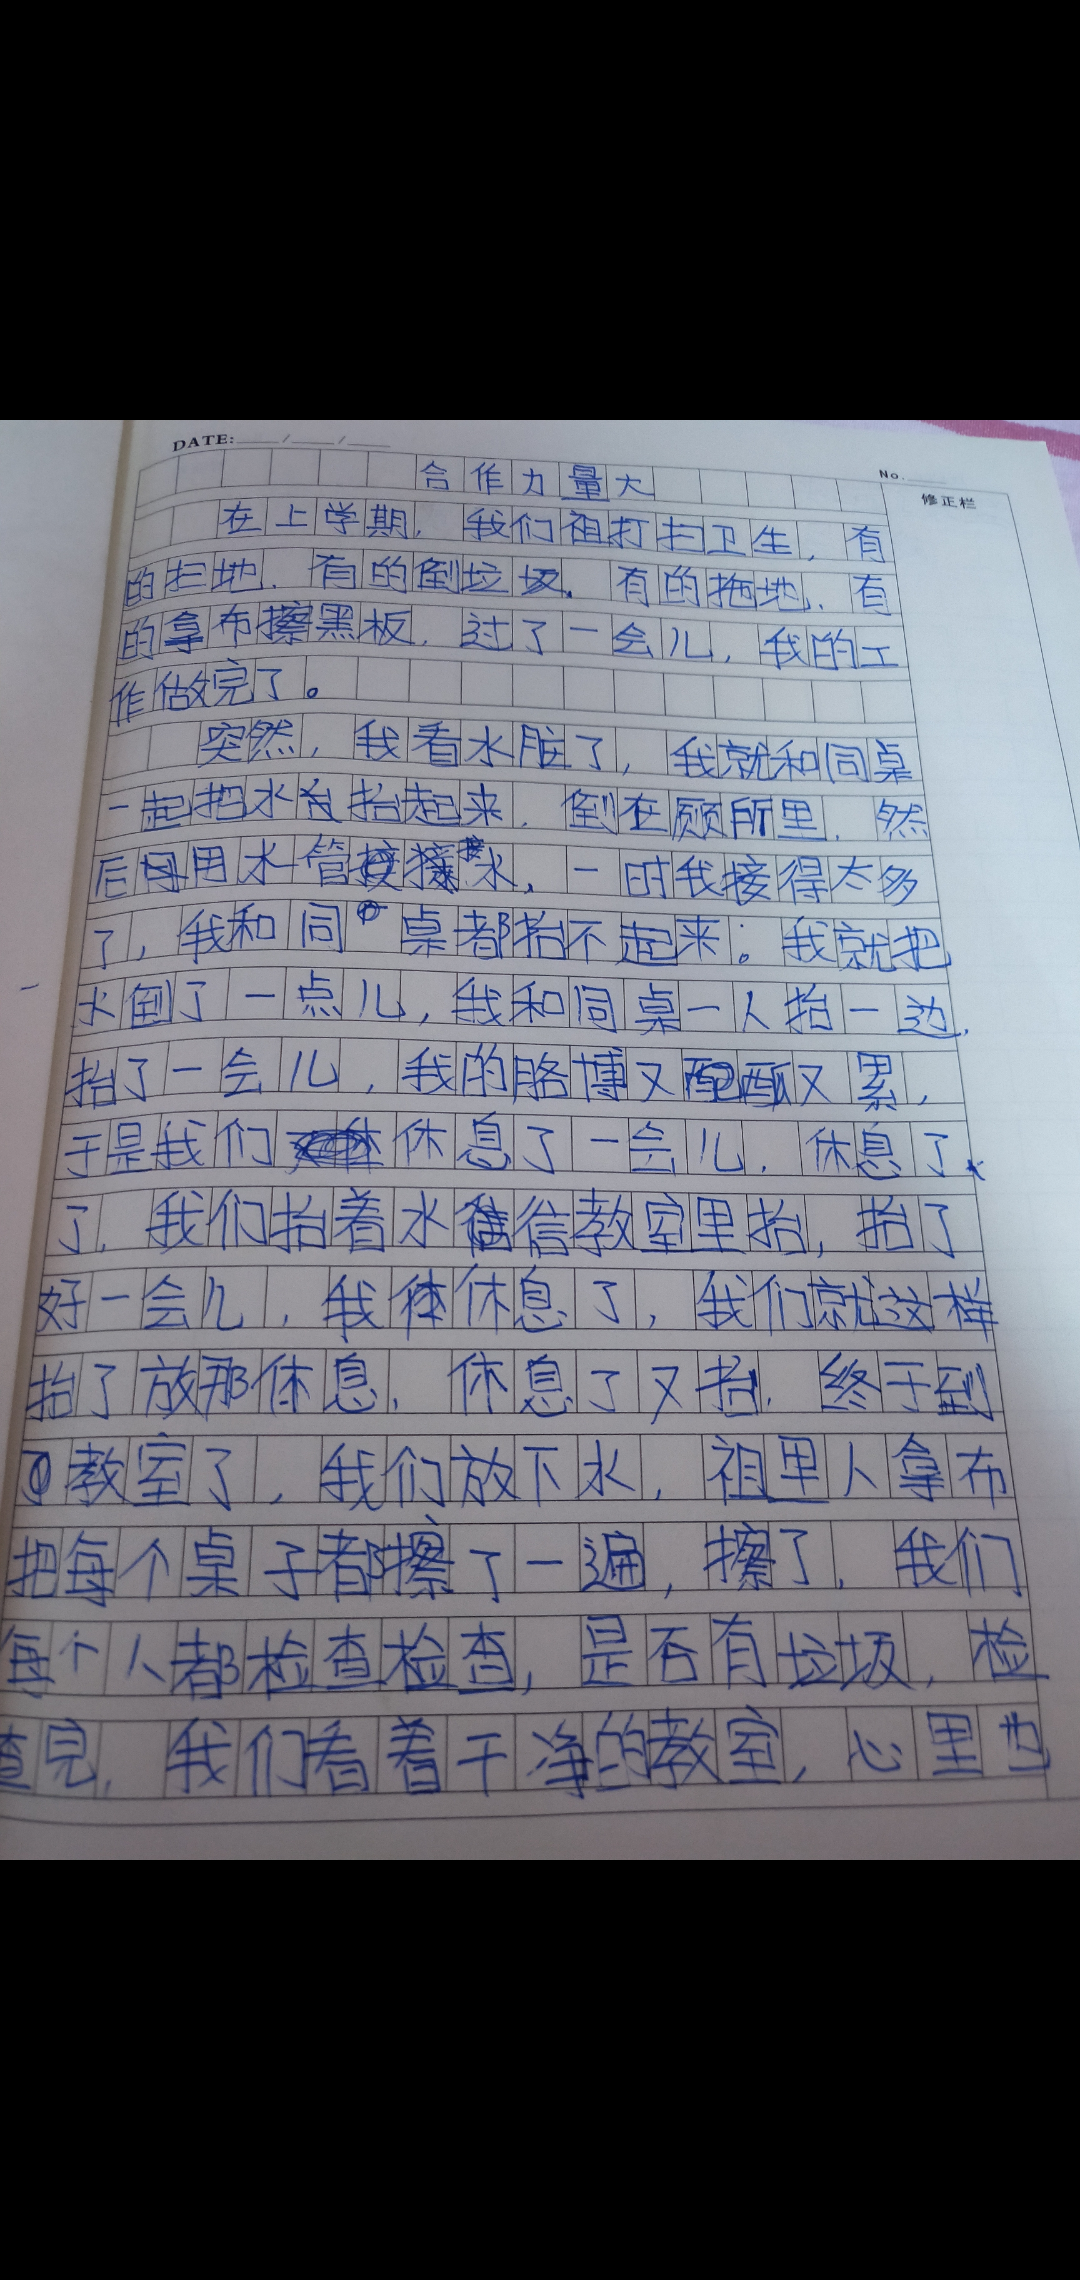 DATE: / /
No.
修正栏
合作力量大
在上学期,我们祖打扫卫生,有
的扫地.有的倒垃圾.有的拖地.有
的拿布擦黑板.过了一会儿,我的工
作做完了。
突然,我看水脏了,我就和同桌
一起把水抬起来.倒在厕所里.然
后用水管接水,一时我接得太多
了,我和同桌都抬不起来。我就把
水倒了一点儿,我和同桌一人抬一边,
抬了一会儿,我的胳博又酸又累,
于是我们休息了一会儿.休息了
了.我们抬着水信教室里抬,抬了
好一会儿,我休息了,我们就这样
抬了放那休息.休息了又抬.终于到
教室了,我们放下水,祖里人拿布
把每个桌子都擦了一遍,擦了.我们
每个人都检查检查,是否有垃圾,检
查完.我们看着干净的教室,心里也